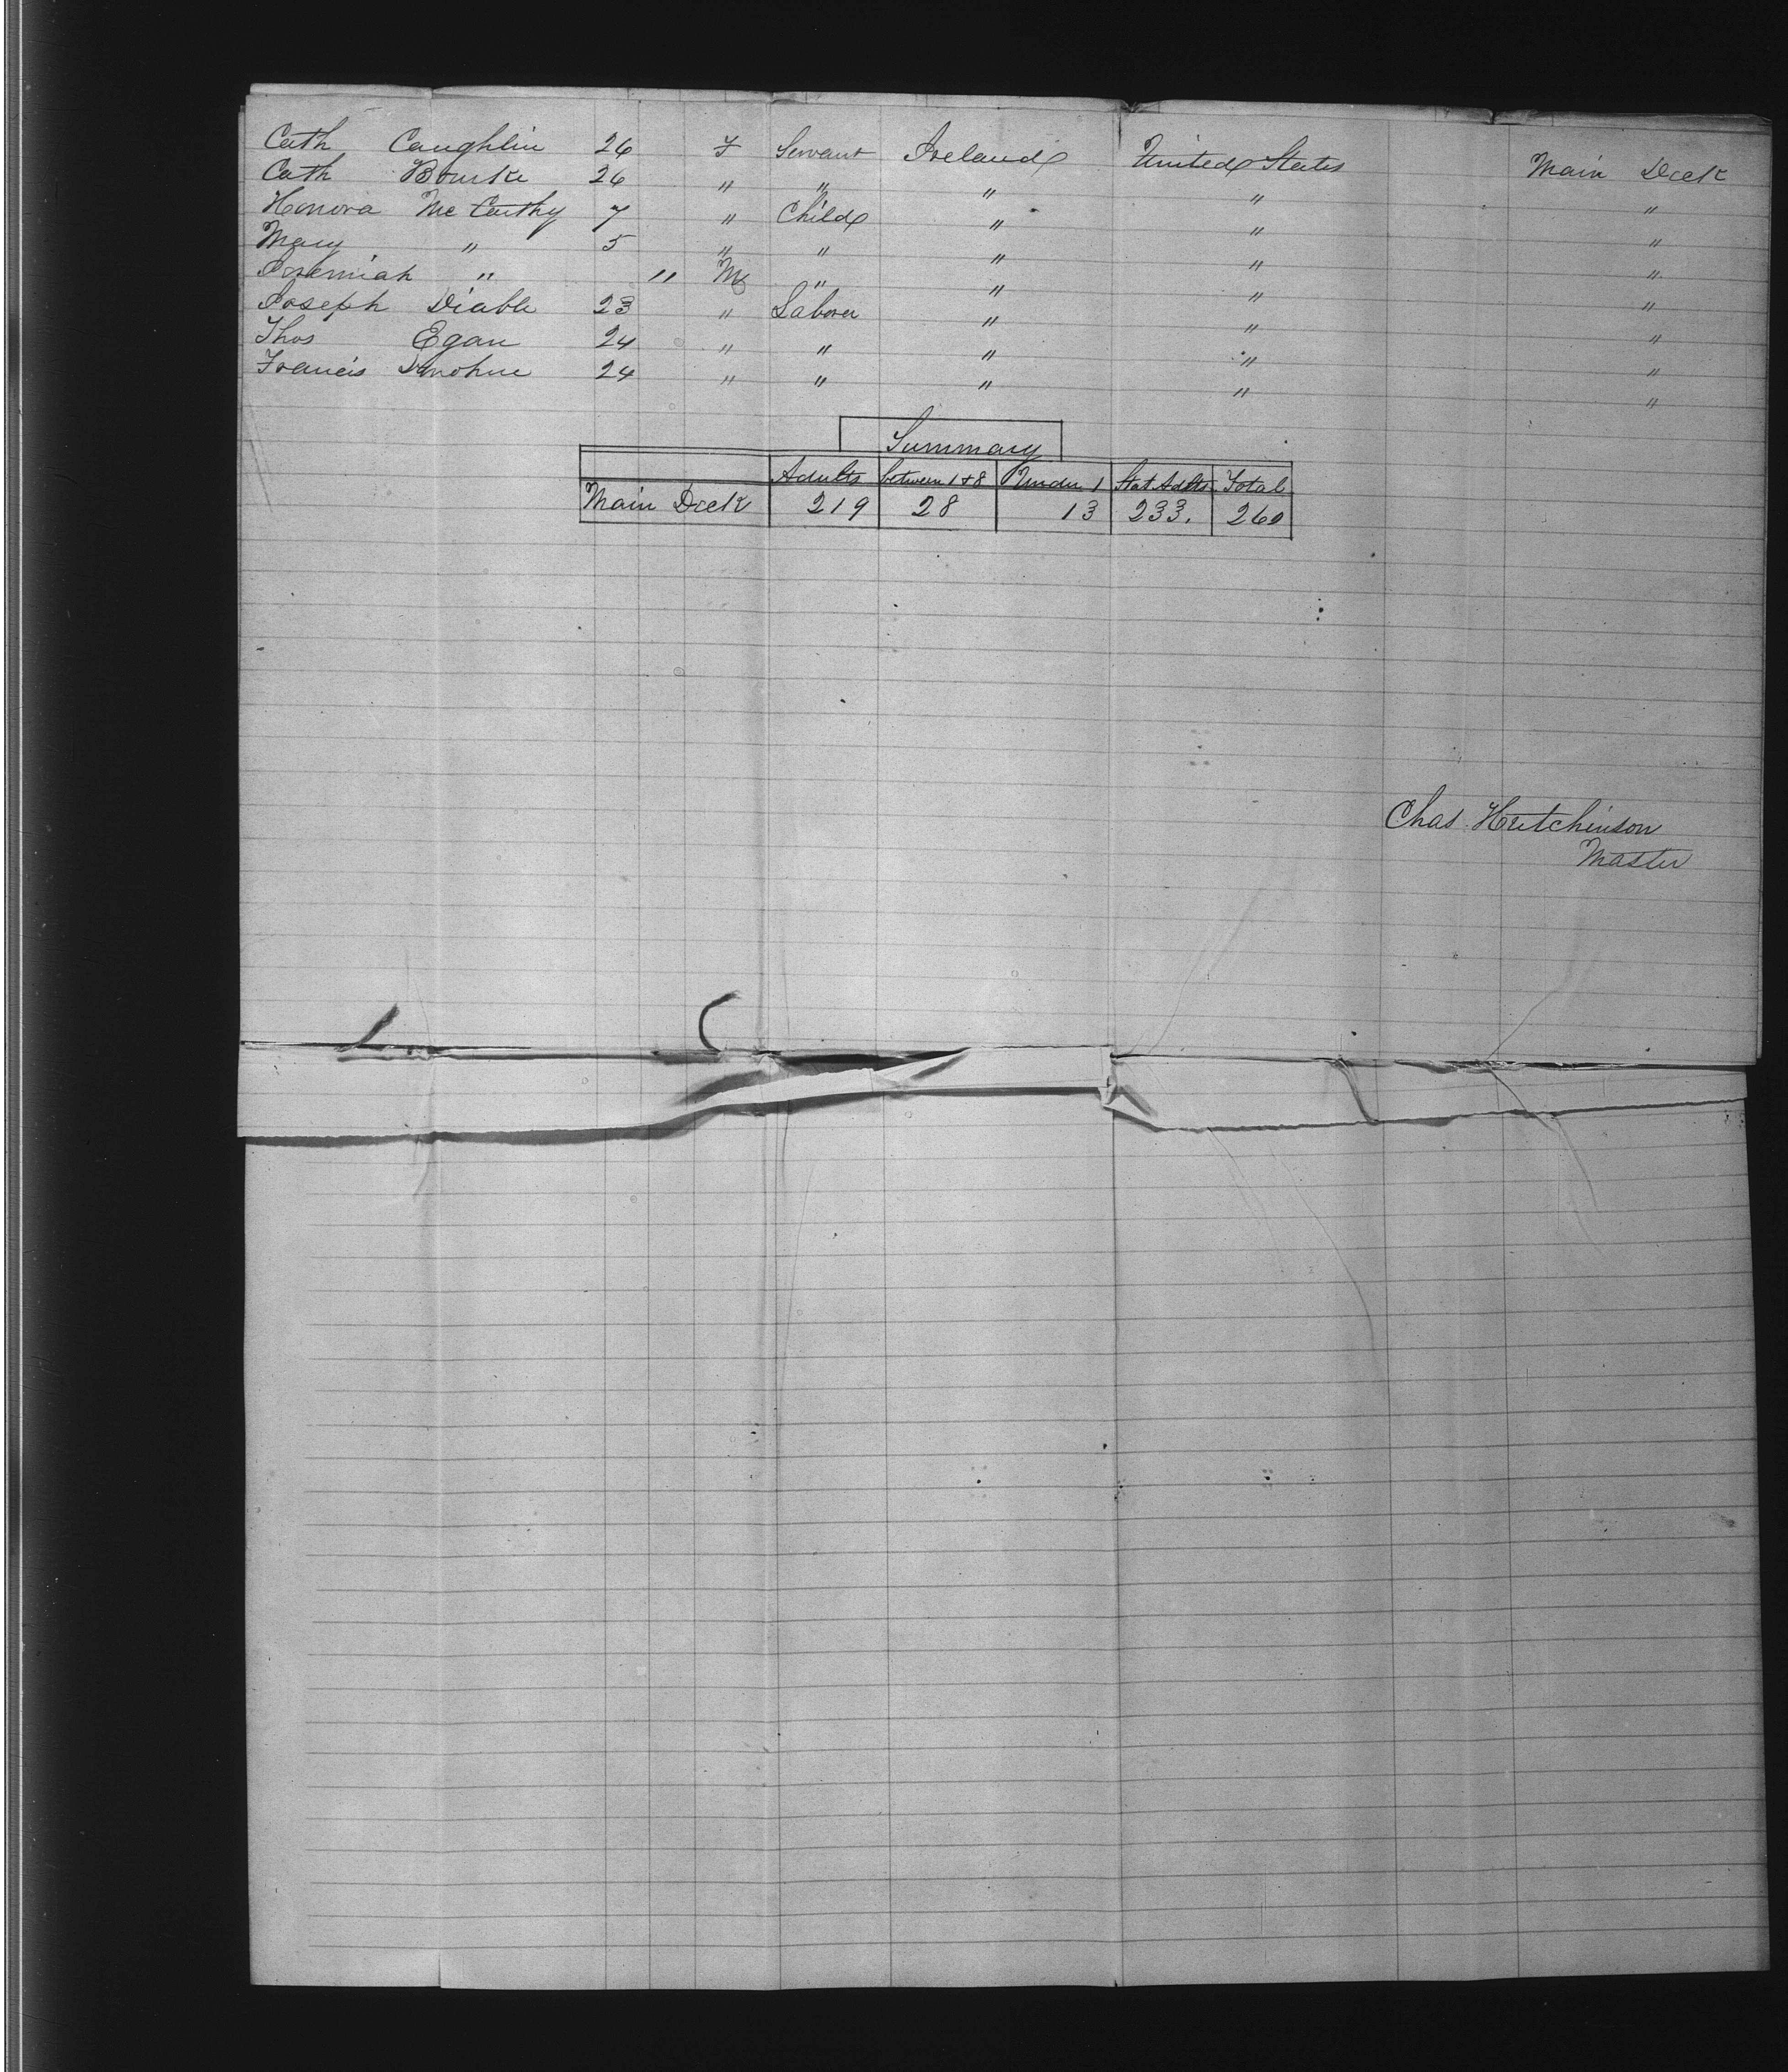 Cath Caughlin 26 F Servant Ireland United States Main Deck
Cath Bourke 26 " " " " "
Honora McCarthy 7 " Child " " "
Mary " 5 " " " " "
Jeremiah " " M " " " "
Joseph Diable 23 " Laborer " " "
Thos Egan 24 " " " " "
Francis Donohue 24 " " " " "
Summary
Adults between 1 & 8 Under 1 Stat Adlts Total
Main Deck 219 28 13 233. 260
Chas Hutchinson
Master